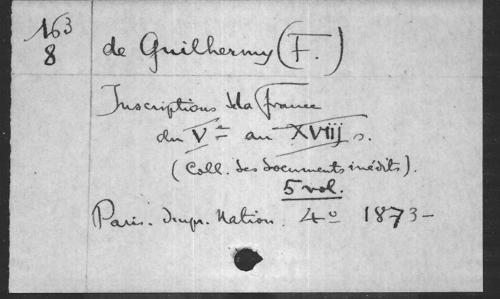 163
8
de Guilhermy (F.)
Inscriptions de la france
du Ve au XVIIJ s.
(Coll. des documents inédits).
5 vol.
Paris. Impr. Nation. 4º 1873-